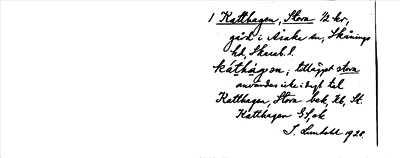 1 Katthagen, Stora ½ kr,
gård i Asaka sn, Skånings
hd, Skarab. l.
káthàgɘn; tillägget stora
användes icke i dagl. tal
Katthagen, Stora bek. Kb, St.
Katthagen GS, ek
S. Lundahl 1928.